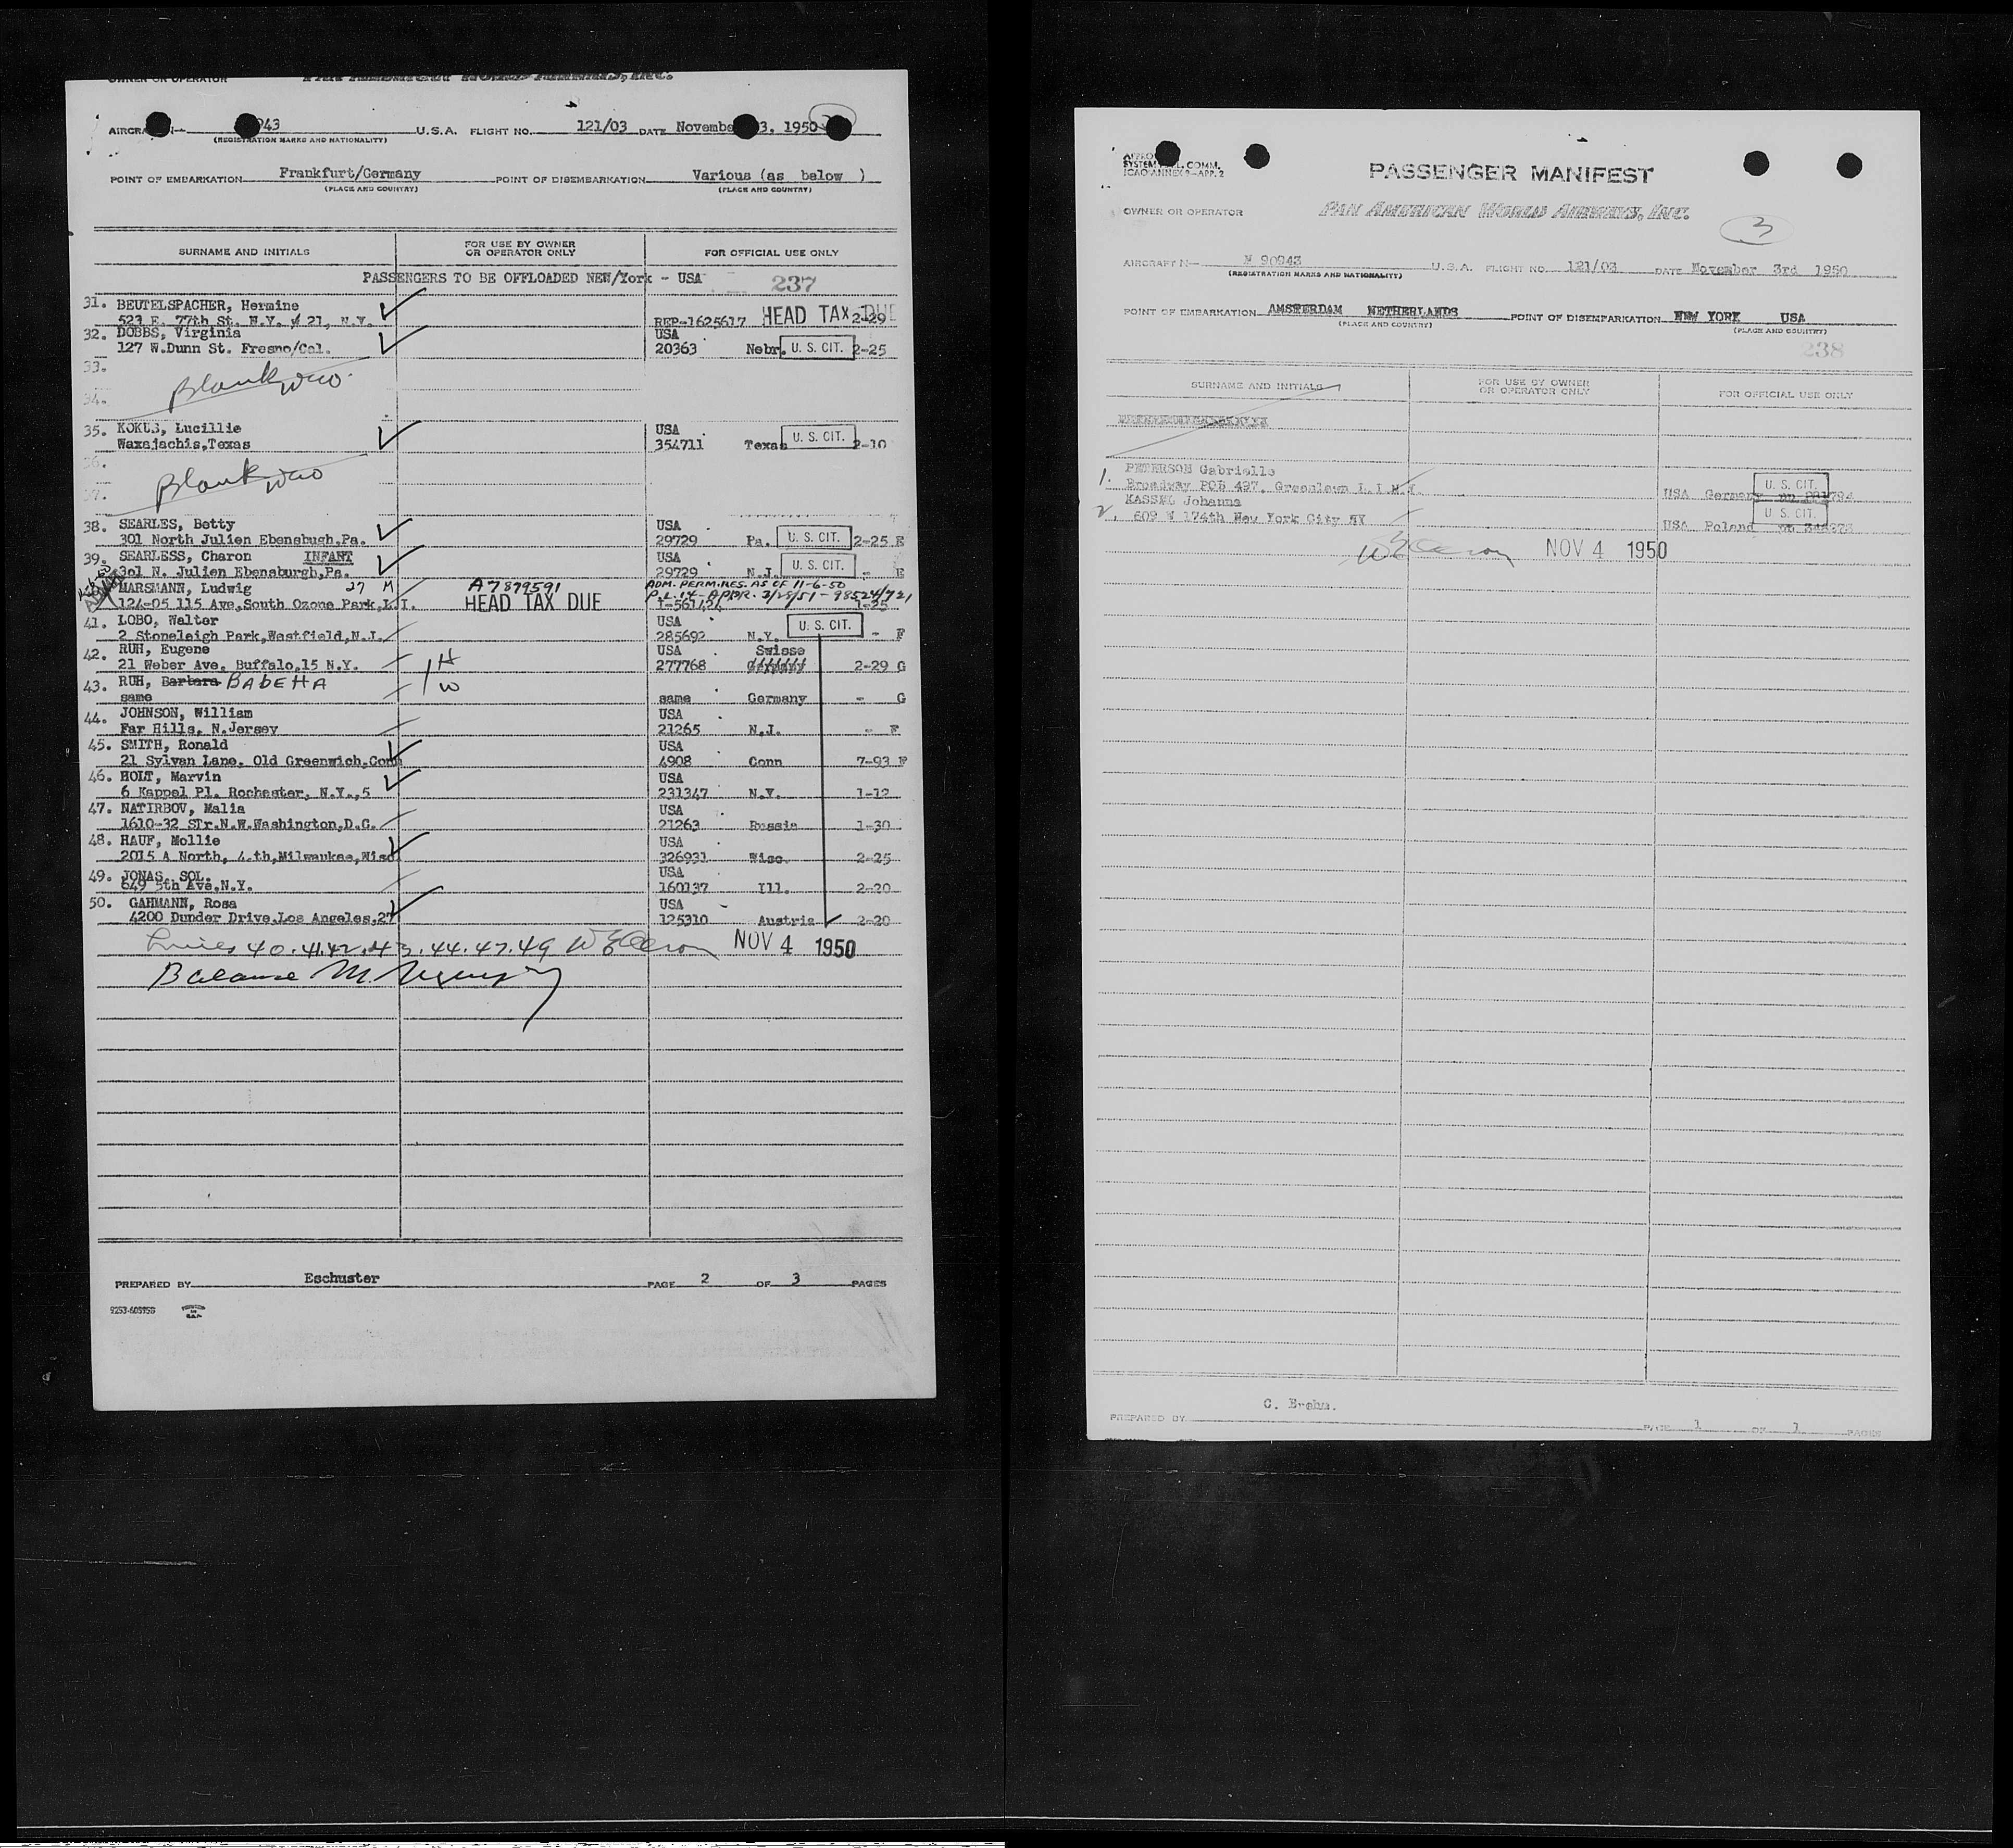 OWNER OR OPERATOR PAN AMERICAN WORLD AIRWAYS, INC.
943 U.S.A. FLIGHT NO. 121/03 DATE November 3. 1950
(REGISTRATION MARKS AND NATIONALITY)
POINT OF EMBARKATION Frankfurt/Germany POINT OF DISEMBARKATION Various (as below )
(PLACE AND COUNTRY) (PLACE AND COUNTRY)
SURNAME AND INITIALS FOR USE BY OWNER OR OPERATOR ONLY FOR OFFICIAL USE ONLY
PASSENGERS TO BE OFFLOADED NEW/York - USA 237
31. BEUTELSPACHER, Hermine HEAD TAX DUE
523 E. 77th St. N.Y. 21, N.Y. REP-1625617 2-29
32. DOBBS, Virginia USA
127 W.Dunn St. Fresno/Cal. 20363 Nebr. U. S. CIT. 2-25
33. Blank
34.
35. KOKUS, Lucillie USA
Waxajachis,Texas 354711 Texas U. S. CIT. 2-10
36. Blank
37.
38. SEARLES, Betty USA
301 North Julien Ebensbugh,Pa. 29729 Pa. U. S. CIT. 2-25 E
39. SEARLESS, Charon INFANT USA
3o1 N. Julien Ebensburgh,Pa. 29729 N.J. U. S. CIT. - E
MARSMANN, Ludwig 27 M A7899591 ADM. PERM. RES. AS OF 11-6-50
124-05 115 Ave,South Ozone Park,L.I. HEAD TAX DUE P.L. 14 - APPR. 3/28/51 - 98524/721
I-561424 1-25
41. LOBO, Walter USA
2 Stoneleigh Park,Westfield,N.J. 285692 N.Y. U. S. CIT. - F
42. RUH, Eugene USA Swisse
21 Weber Ave. Buffalo,15 N.Y. 1 H 277768 Germany 2-29 G
43. RUH, Barbara BABETTA
same 1 W same Germany - G
44. JOHNSON, William USA
Far Hills, N.Jersey 21265 N.J. - F
45. SMITH, Ronald USA
21 Sylvan Lane, Old Greenwich,Conn 4908 Conn 7-93 F
46. HOLT, Marvin USA
6 Kappel Pl. Rochester, N.Y.,5 231347 N.Y. 1-12
47. NATIRBOV, Malia USA
1610-32 STr.N.W.Washington,D.C. 21263 Russia 1-30
48. HAUF, Mollie USA
2015 A North, 4.th,Milwaukee,Wisc 326931 Wisc. 2-25
49. JONAS, SOL. USA
649 5th Ave.N.Y. 160137 Ill. 2-20
50. GAHMANN, Rosa USA
4200 Dunder Drive,Los Angeles,27 125310 Austria 2-20
Lines 40.41.42.43.44.47.49 NOV 4 1950
Balance M.
PREPARED BY Eschuster PAGE 2 OF 3 PAGES
SYSTEM COMM.
ICAO ANNEX 9-APP. 2
PASSENGER MANIFEST
OWNER OR OPERATOR PAN AMERICAN WORLD AIRWAYS, INC.
3
AIRCRAFT N— N 90943 U.S.A. FLIGHT NO. 121/03 DATE November 3rd 1950
(REGISTRATION MARKS AND NATIONALITY)
POINT OF EMBARKATION AMSTERDAM NETHERLANDS POINT OF DISEMBARKATION NEW YORK USA
(PLACE AND COUNTRY) (PLACE AND COUNTRY)
238
SURNAME AND INITIALS FOR USE BY OWNER OR OPERATOR ONLY FOR OFFICIAL USE ONLY
1. PETERSON Gabrielle
Broadway POB 497. Greenlawn L.I.N.Y. USA Germany U. S. CIT.
KASSEL Johanna
2. 609 W 174th New York City NY USA Poland U. S. CIT.
NOV 4 1950
C. Brehm.
PREPARED BY PAGE 1 OF 1 PAGES